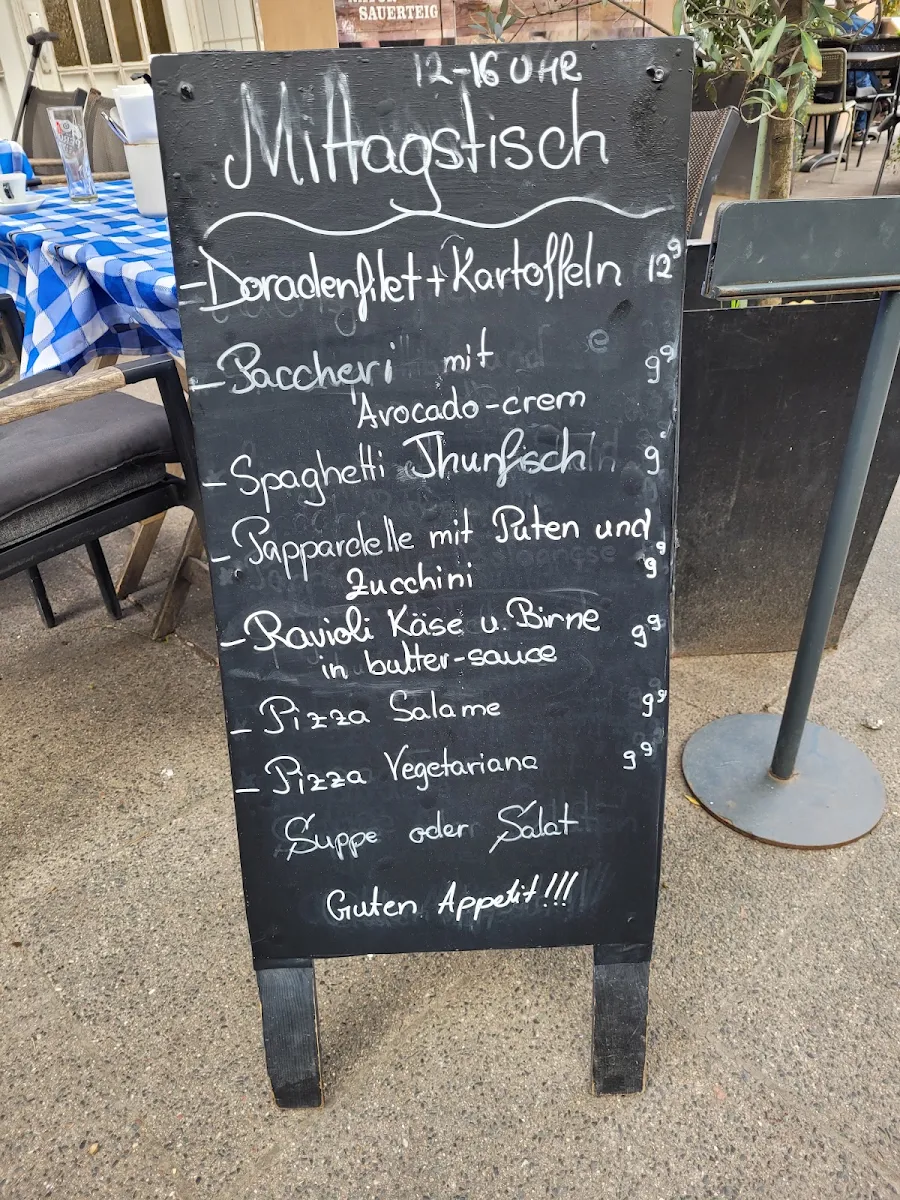 SAUERTEIG
12-16 UHR
Mittagstisch
- Doradenfilet + Kartoffeln 12⁹
- Paccheri mit 9⁹
Avocado-crem
- Spaghetti Thunfisch 9⁹
- Pappardelle mit Puten und
Zucchini 9⁹
- Ravioli Käse u. Birne 9⁹
in butter-sauce
- Pizza Salame 9⁹
- Pizza Vegetariana 9⁹
Suppe oder Salat
Guten Appetit!!!